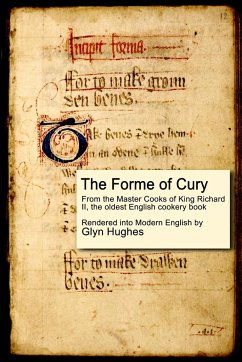 12
Incipit forma.
ffor to make groun
den benes.
Take benes & drye hem
an ovene & hulle
The Forme of Cury
From the Master Cooks of King Richard
II, the oldest English cookery book
Rendered into Modern English by
Glyn Hughes
ffor to make drawen
benes.